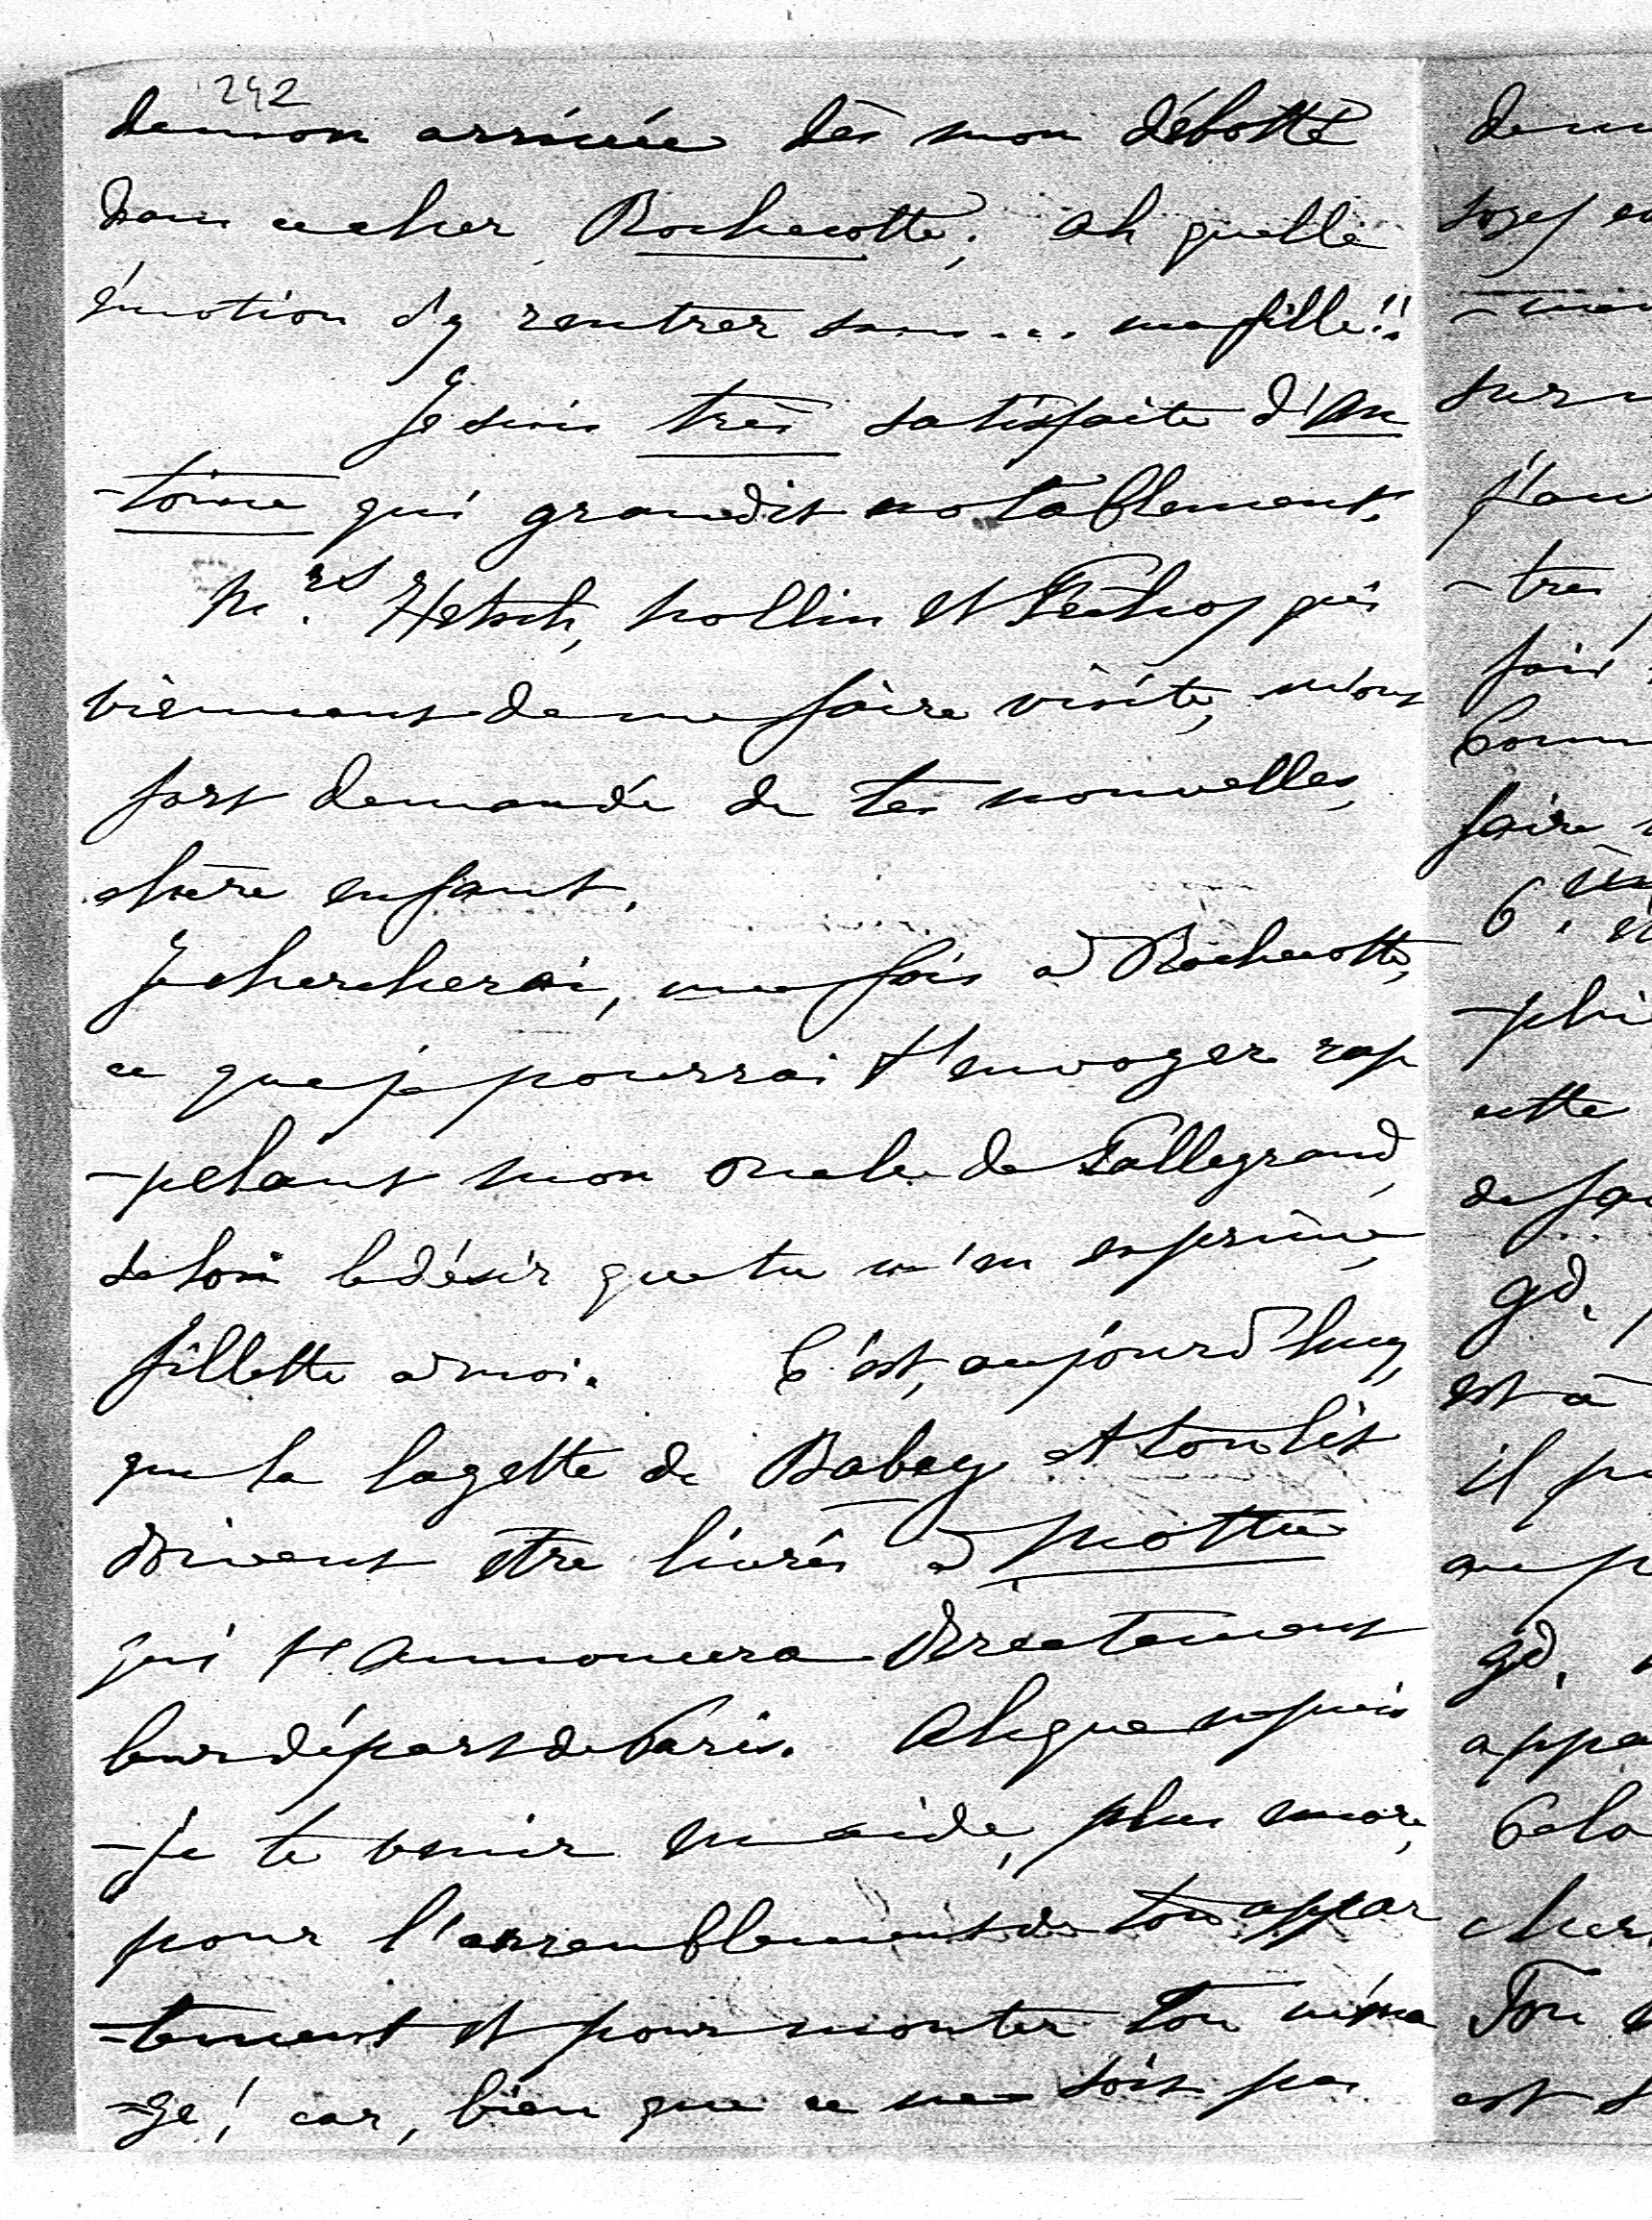 242
de mon arrivée dès mon débotté
dans ce cher Rochecotte; ah quelle
émotion d'y rentrer sans.... ma fille!!
Je suis très satisfaite d'An
-toine qui grandit notablement.
Mrs Hetsch, Nollin et qui
viennent de me faire visite, m'ont
fort demandé de tes nouvelles,
chère enfant.
Je chercherai, une fois à Rochecotte,
ce que je pourrai t'envoyer rap
-pelant mon oncle de Talleyrand,
selon le désir que tu m'en exprime,
fillette à moi. C'est, aujourd'huy,
que la layette de Babey et ton lit
doivent être livrés à
qui t'annoncera directement
leur départ de Paris. Ah que ne puis
-je te venir en aide, plus encore,
pour l'ameublement de ton appar
-tement et pour monter ton ména
-ge! car, bien que ce ne soit pas
dem
sur
-tres
fois
Comm
faire
6.
-plai
cette
de
gd.
est à
il
gd.
appa
Cela
cher
Ton
est